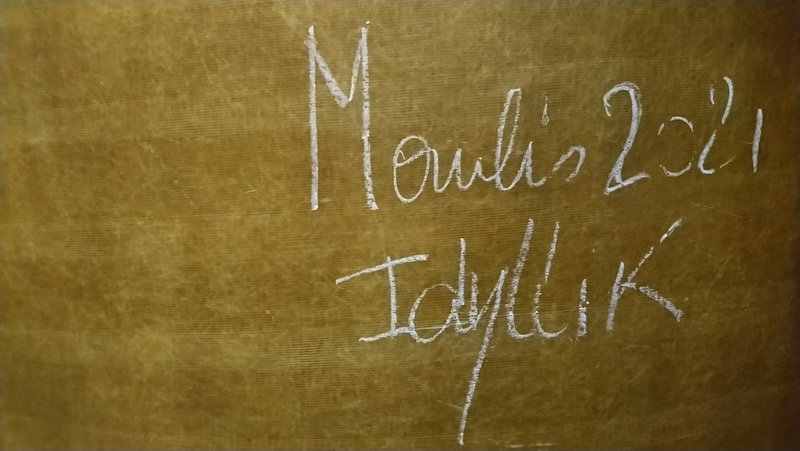 Moulis 2021
IdylliK